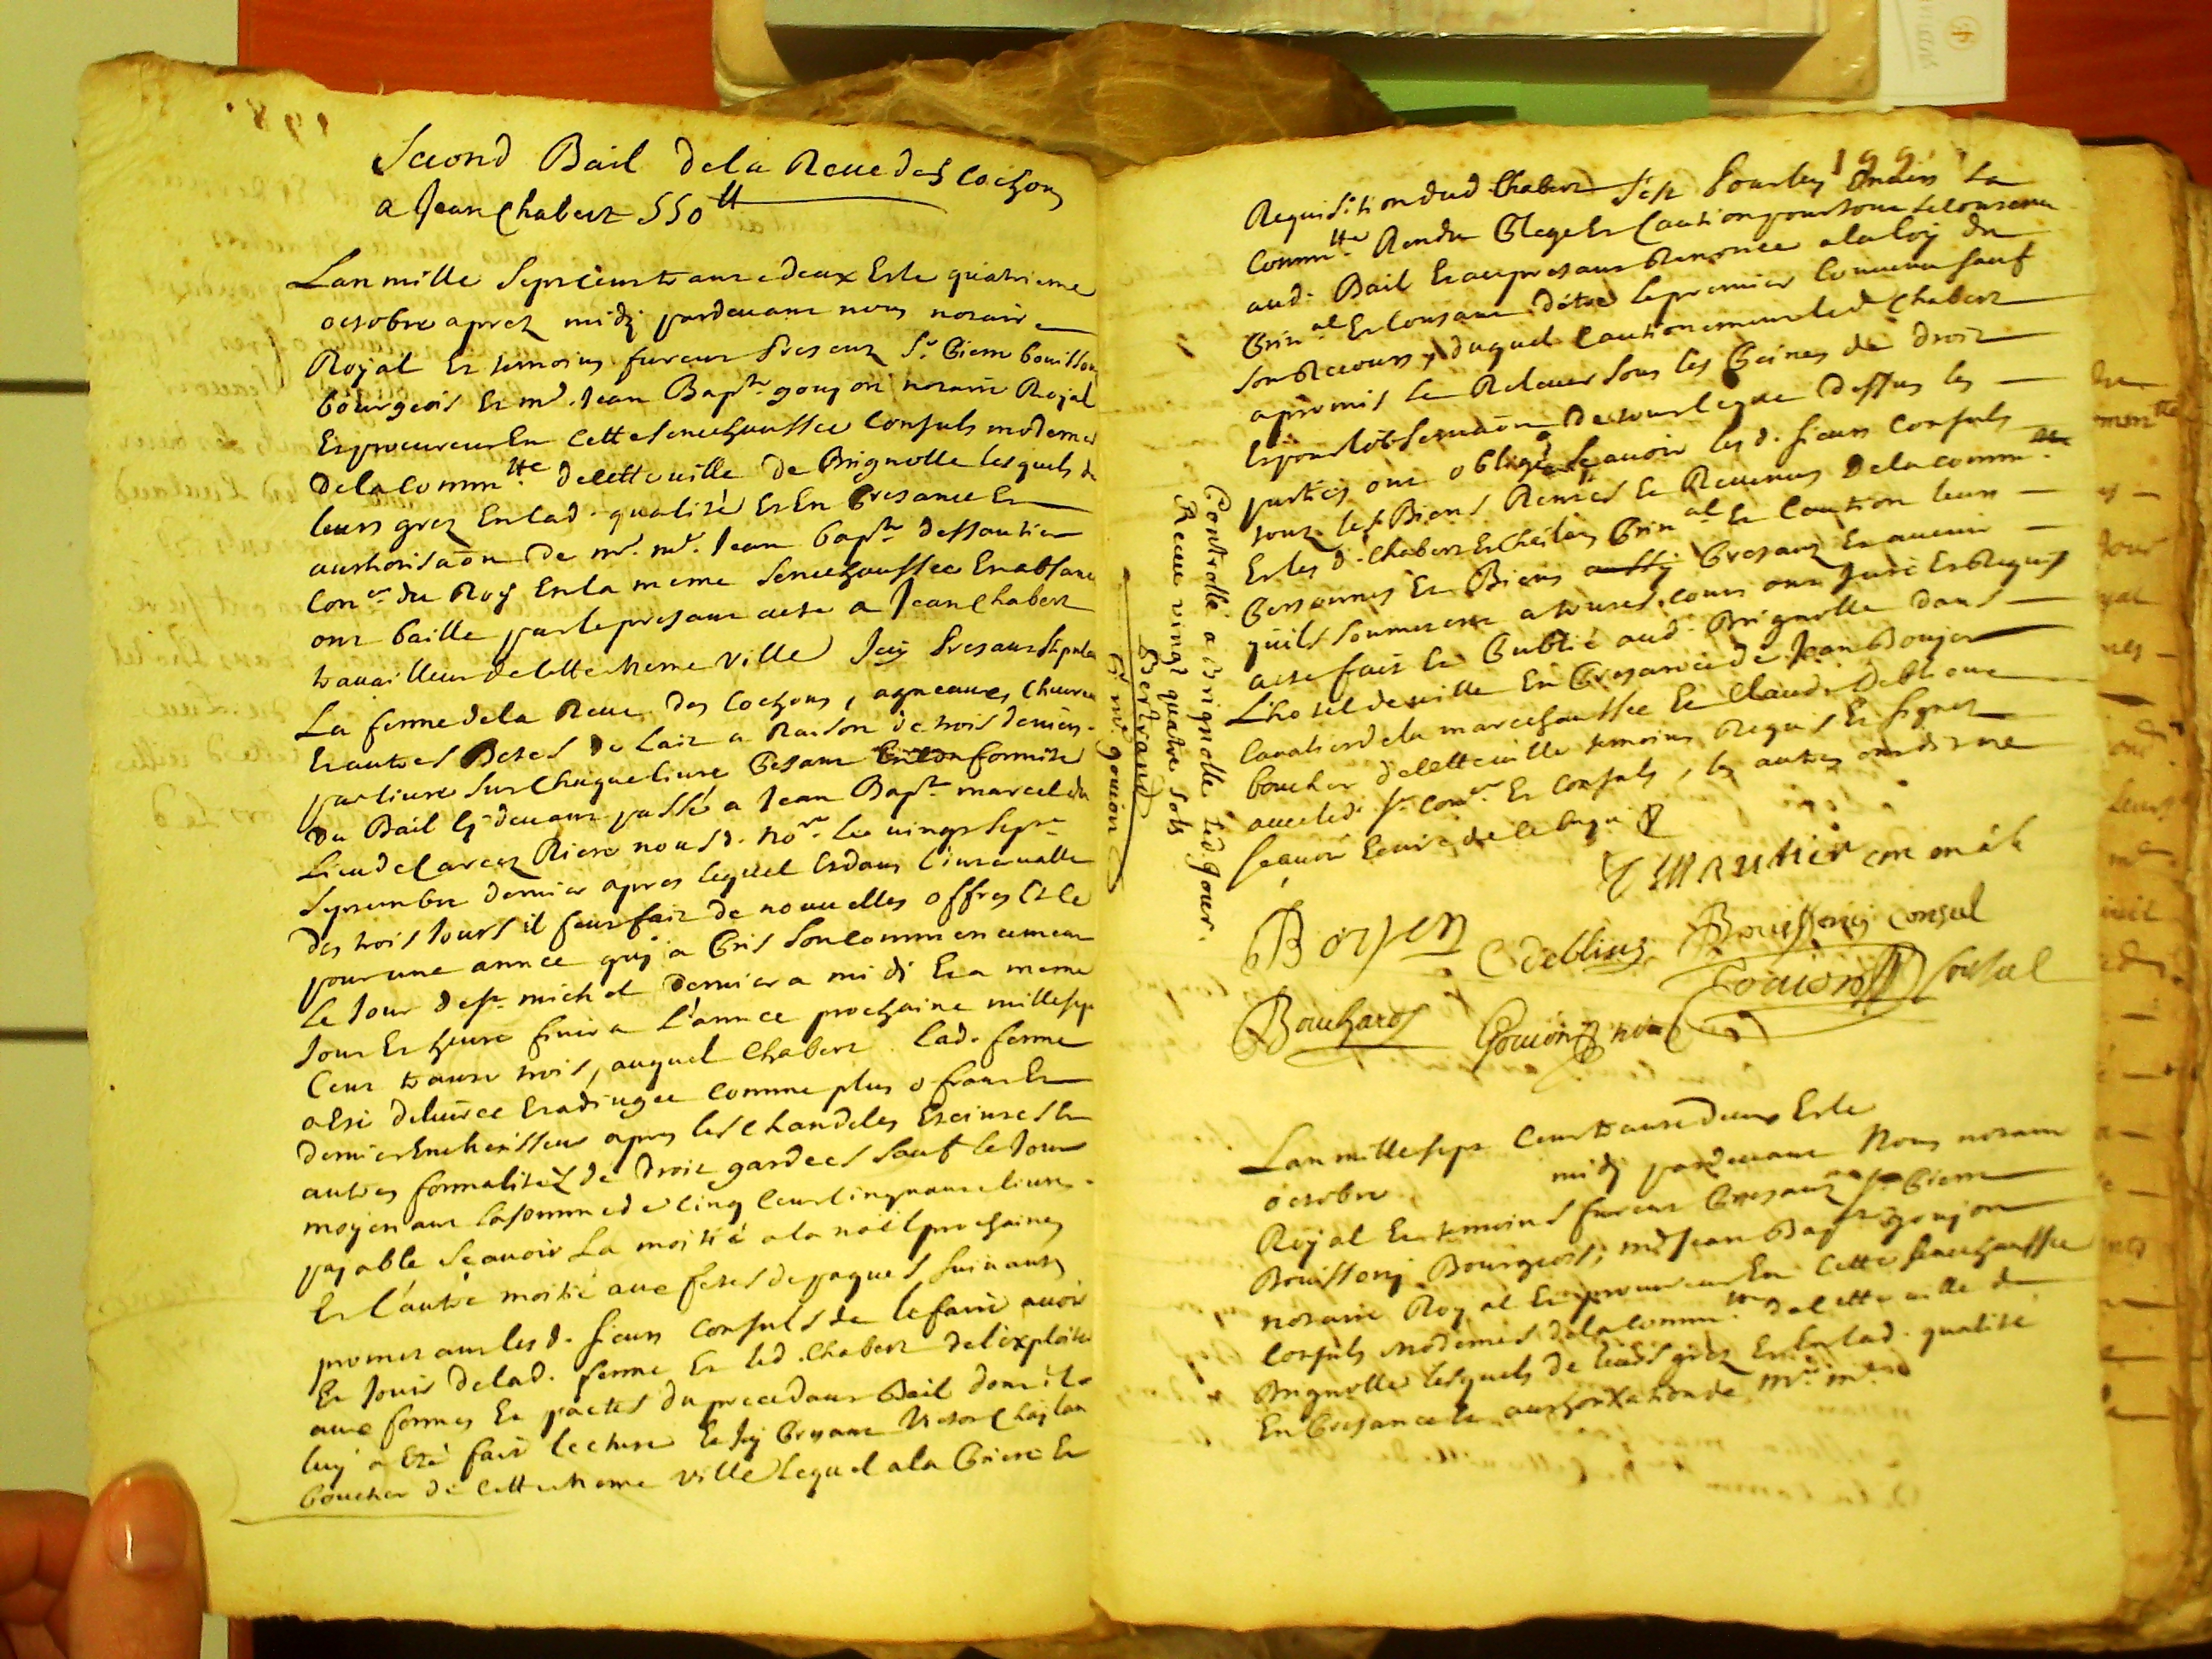 198.
Second Bail dela Reve des Cochons
a Jean Chabert 550 tt
Lan mille sept cent trante deux Et le quatrieme
octobre aprez midy pardevant nous notaire
Royal Et temoins furent presens Sr. Pierre bouissony
bourgeois Et me. Jean Baptte gouyon notaire Royal
Et procureur En cette senechaussee Consuls modernes
dela Commtte. de cette ville de Brignolle lesquels de
leurs grez En lad. qualité Et En presance Et
authorisaon de mr. me. Jean bapte dessautier
Coner. du Roy En la meme senechaussee En absance
ont baille par le presant acte a Jean Chabert
travailleur de cette meme ville Icy presant stipulant
La ferme dela Reve des Cochons, agneaux, Chevreaux
Et autres Betes de lait a Raison de trois deniers
par livre sur Chaque livre pesant En conformité
du Bail cy devant passé a Jean Bapte marcel du
Lieu de Carces Riere nous d. Nore. le vingt sept
septembre dernier apres lequel Et dans l'intervalle
des trois jours il feut fait de nouvelles offres Et ce
pour une année quy a pris son commencement
le jour de st michel dernier a midi Et a meme
jour Et heure finira l'année prochaine mille sept
Cent trante trois, auquel Chabert lad. ferme
a Eté delivrée Et adjugée comme plus ofrant Et
dernier Encherisseur apres les chandeles Eteintes Et
autres formalités de droit gardées sauf le jour
moyenant la somme de cinq cent cinquante livres
payable sçavoir la moitié a la noël prochaine
Et l'autre moitié aux fetes de paques suivantes
promettant les d. sieurs Consuls de le faire avoir
Et jouir de lad. ferme Et led. Chabert de l'exploiter
aux formes Et pactes du precedant Bail dont il
luy a Eté fait lecture Et Icy presant Victor Chaylan
boucher de cette meme ville lequel a la priere Et
Controllé a brignolle led jour.
Receu vingt quatre sols
Bertrand
Et me. gouion
199.
Requisition dud Chabert s'est pour luy Envers la
Commtte. Rendu plege Et Caution pour tout le contenu
aud. Bail Et au presant Renonce a la loy du
prinal Et consant d'étre le premier Convenu sauf
son Recours, duquel Cautionement led Chabert
a promis le Relever sous les peines de droit
Et pour l'observaon de tout ce que dessus les
parties ont obligé sçavoir les d. sieurs Consuls
tous les Biens Rentes Et Revenus dela Commte.
Et les d. Chabert Et Chaylan prinal Et Caution leurs
personnes Et Biens presans Et avenir
quils soumettent a toutes cours ont juré Et Requis
acte fait Et publié aud. Brignolle dans
L'hotel de ville En presance de Jean Boyer
Cavalier dela marechaussee Et Claude Deblieux
boucher de cette ville temoins Requis Et signez
avec led. sr. Coner. Et Consuls, les autres ont dit ne
sçavoir Ecrire de ce Enquis
Boyer C debliux Bouissony consul
Bouchard Gouion Consul
Gouion not
Lan mille sept Cent trante deux Et le
octobre midy pardevant Nous notaire
Royal Et temoins furent presans Sr. pierre
Bouissony Bourgeois; me Jean Bapte goujon
notaire Royal Et procureur En cette senechaussee
Consuls modernes dela Commte. de cette ville de
Brignolle lesquels de leurs grez Et En lad. qualité
En presance Et authorisation de mr. me.